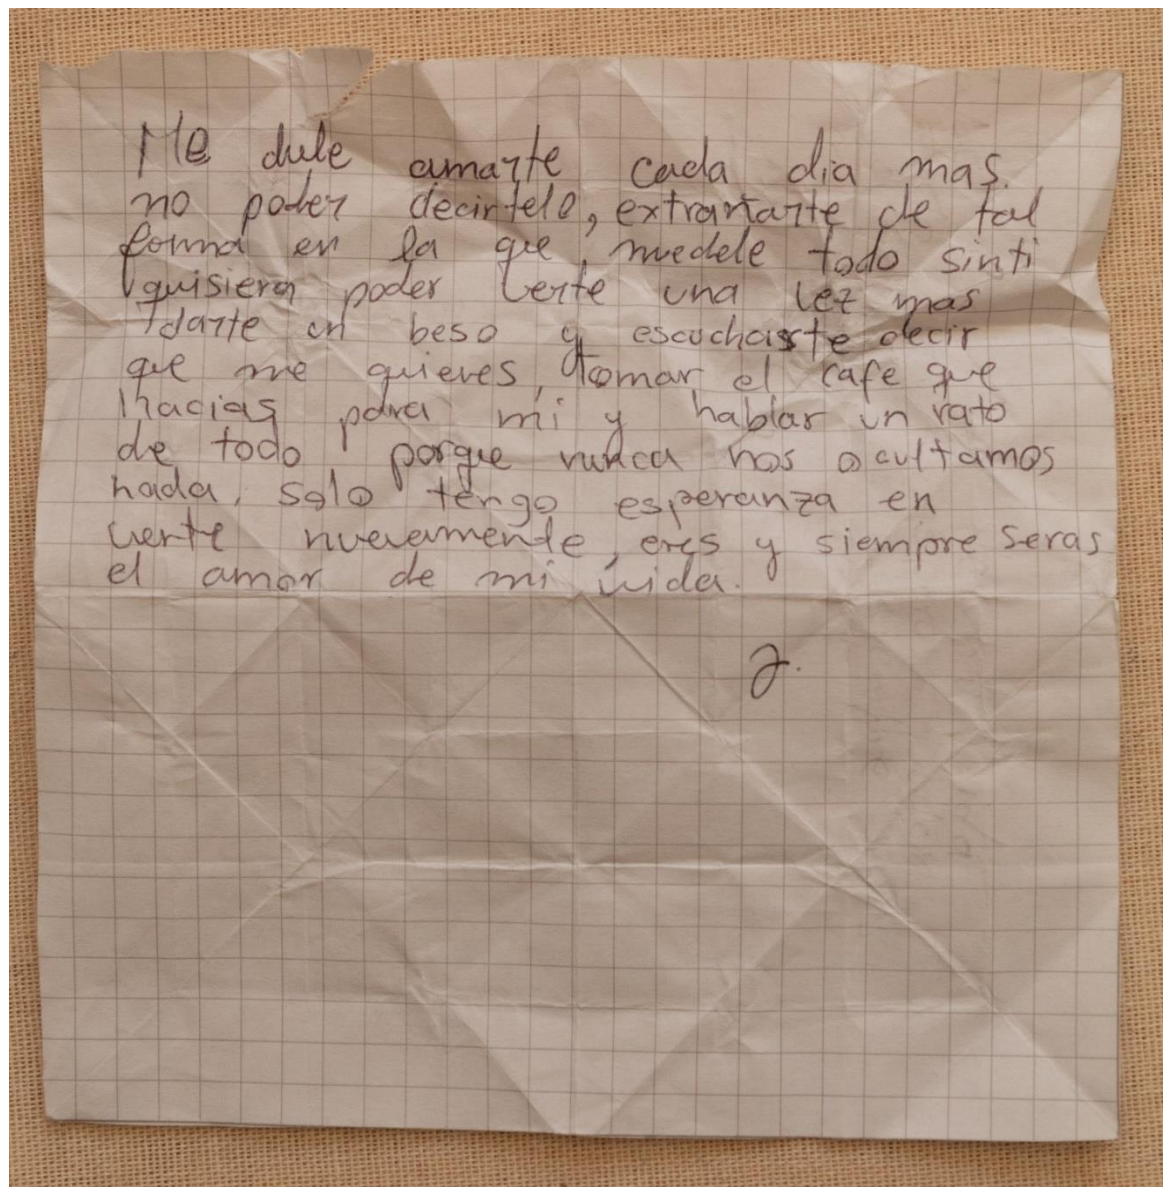 Me dule amarte cada dia mas.
no poder decirtelo, extrañarte de tal
forma en la que, meduele todo sinti
quisiera poder verte una vez mas
darte un beso y escucharte decir
que me quieres, tomar el cafe que
hacias para mi y hablar un rato
de todo porque nunca nos ocultamos
nada, solo tengo esperanza en
verte nuevamente, eres y siempre seras
el amor de mi vida.
J.